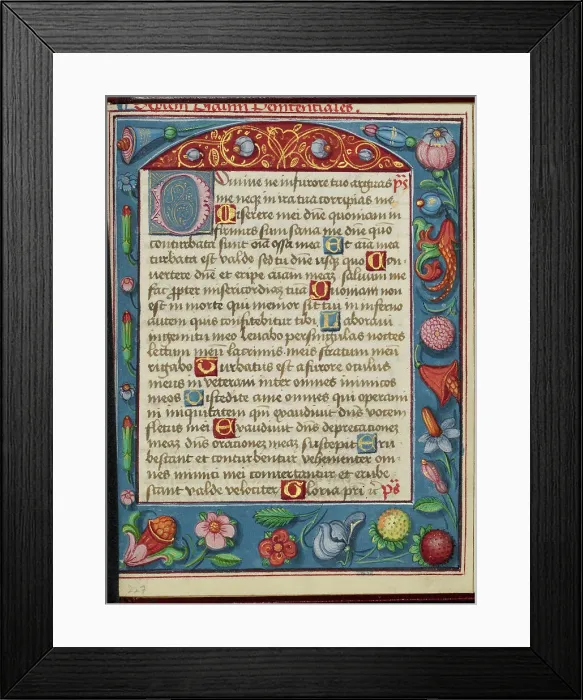 Septem Psalmi Penitentiales.
Domine ne in furore tuo arguas ps
me neq; in ira tua corripias me
Miserere mei dñe quoniam in
firmus sum sana me dñe quo
conturbata sunt oīa ossa mea Et aīa mea
turbata est valde sed tu dñe usq; quo Con
vertere dñe et eripe aīam meaz salvum me
fac ꝓpter misericordiaz tuā Quoniam non
est in morte qui memor sit tui in inferno
autem quis confitebitur tibi Laboravi
in gemitu meo lavabo per singulas noctes
lectum meū lacrimis meis stratum meū
rigabo Turbatus est a furore oculus
meus inveteravi inter omnes inimicos
meos Discedite a me omnes qui operami
ni iniquitatem qm̄ exaudivit dñs vocem
fletus mei Exaudivit dñs deprecationez
meaz dñs orationez meaz suscepit Eru
bescant et conturbentur vehementer om
nes inimici mei convertantur et erube
scant valde velociter Gloria pri ps
227